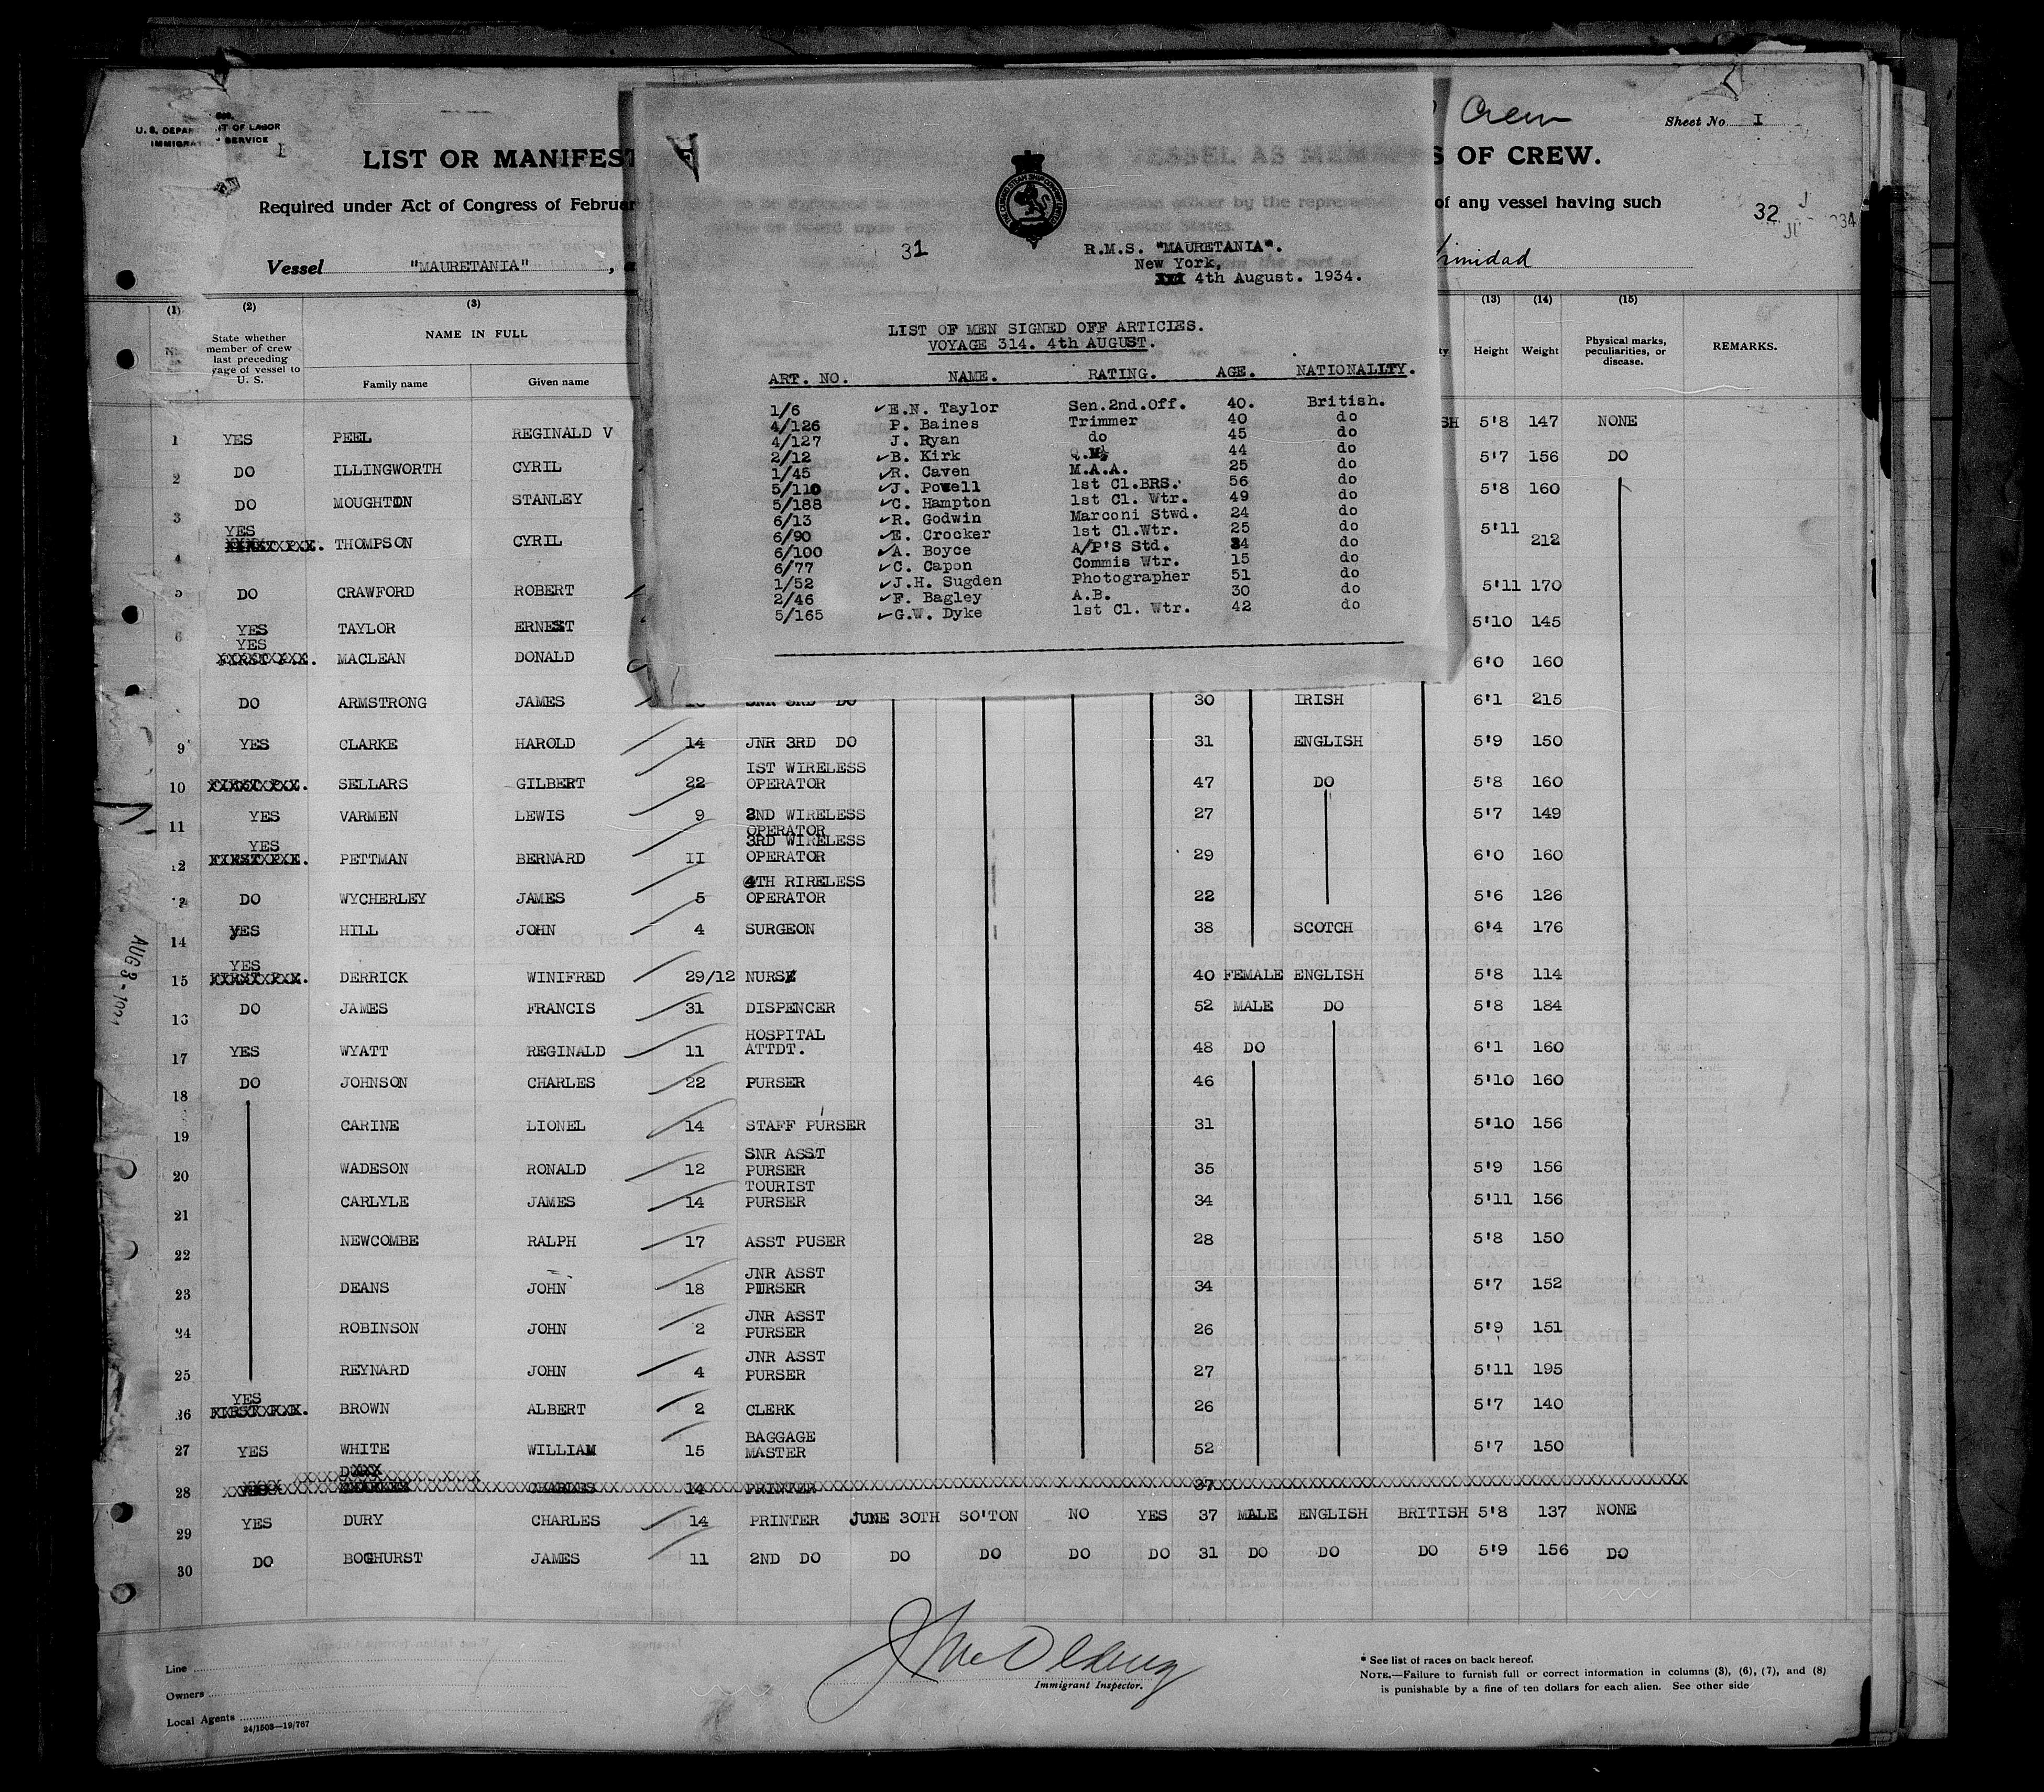 U. S. DEPARTMENT OF LABOR
IMMIGRATION SERVICE
I
LIST OR MANIFEST
S OF CREW.
Crew
Sheet No. I
Required under Act of Congress of Februar
of any vessel having such
32
Vessel "MAURETANIA",
Trinidad
31
R.M.S. "MAURETANIA".
New York,
4th August. 1934.
LIST OF MEN SIGNED OFF ARTICIES.
VOYAGE 314. 4th AUGUST.
ART. NO. NAME. RATING. AGE. NATIONALITY.
1/6 E.N. Taylor Sen.2nd.Off. 40. British.
4/126 P. Baines Trimmer 40 do
4/127 J. Ryan do 45 do
2/12 B. Kirk Q.M. 44 do
1/45 R. Caven M.A.A. 25 do
5/110 J. Powell 1st Cl.BRS. 56 do
5/188 C. Hampton 1st Cl. Wtr. 49 do
6/13 R. Godwin Marconi Stwd. 24 do
6/90 E. Crocker 1st Cl.Wtr. 25 do
6/100 A. Boyce A/P'S Std. 34 do
6/77 C. Capon Commis Wtr. 15 do
1/52 J.H. Sugden Photographer 51 do
2/46 F. Bagley A.B. 30 do
5/165 G.W. Dyke 1st Cl. Wtr. 42 do
(1) (2) (3) (13) (14) (15)
State whether
member of crew
last preceding
yage of vessel to
U. S.
NAME IN FULL
Family name Given name
Height Weight
Physical marks,
peculiarities, or
disease.
REMARKS.
1 YES PEEL REGINALD V SH 5'8 147 NONE
2 DO ILLINGWORTH CYRIL 5'7 156 DO
3 DO MOUGHTON STANLEY 5'8 160
4 YES THOMPSON CYRIL 5'11 212
5 DO CRAWFORD ROBERT 5'11 170
6 YES TAYLOR ERNEST 5'10 145
YES MACLEAN DONALD 6'0 160
DO ARMSTRONG JAMES SNR 3RD DO 30 IRISH 6'1 215
9 YES CLARKE HAROLD 14 JNR 3RD DO 31 ENGLISH 5'9 150
10 SELLARS GILBERT 22 IST WIRELESS OPERATOR 47 DO 5'8 160
11 YES VARMEN LEWIS 9 2ND WIRELESS OPERATOR 27 5'7 149
12 YES PETTMAN BERNARD II 3RD WIRELESS OPERATOR 29 6'0 160
DO WYCHERLEY JAMES 5 4TH RIRELESS OPERATOR 22 5'6 126
14 YES HILL JOHN 4 SURGEON 38 SCOTCH 6'4 176
15 YES DERRICK WINIFRED 29/12 NURSE 40 FEMALE ENGLISH 5'8 114
16 DO JAMES FRANCIS 31 DISPENCER 52 MALE DO 5'8 184
17 YES WYATT REGINALD 11 HOSPITAL ATTDT. 48 DO 6'1 160
18 DO JOHNSON CHARLES 22 PURSER 46 5'10 160
19 CARINE LIONEL 14 STAFF PURSER 31 5'10 156
20 WADESON RONALD 12 SNR ASST PURSER 35 5'9 156
21 CARLYLE JAMES 14 TOURIST PURSER 34 5'11 156
22 NEWCOMBE RALPH 17 ASST PUSER 28 5'8 150
23 DEANS JOHN 18 JNR ASST PURSER 34 5'7 152
24 ROBINSON JOHN 2 JNR ASST PURSER 26 5'9 151
25 REYNARD JOHN 4 JNR ASST PURSER 27 5'11 195
26 YES BROWN ALBERT 2 CLERK 26 5'7 140
27 YES WHITE WILLIAM 15 BAGGAGE MASTER 52 5'7 150
28 CHARLES 14 PRINTER 37
29 YES DURY CHARLES 14 PRINTER JUNE 30TH SO'TON NO YES 37 MALE ENGLISH BRITISH 5'8 137 NONE
30 DO BOGHURST JAMES 11 2ND DO DO DO DO DO 31 DO DO DO 5'9 156 DO
Immigrant Inspector.
Line
Owners
Local Agents
24/1503—19/767
* See list of races on back hereof.
NOTE.—Failure to furnish full or correct information in columns (3), (6), (7), and (8)
is punishable by a fine of ten dollars for each alien. See other side